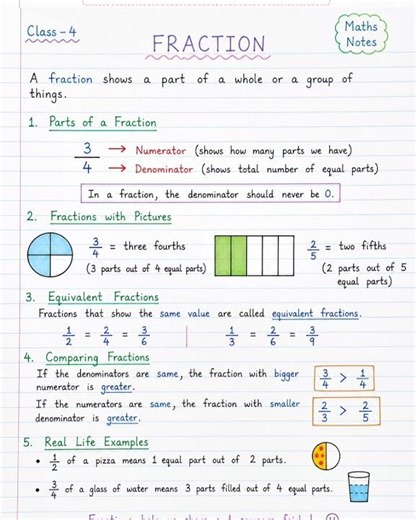 Class - 4
FRACTION
Maths
Notes
A fraction shows a part of a whole or a group of
things.
1. Parts of a Fraction
3/4
→ Numerator (shows how many parts we have)
→ Denominator (shows total number of equal parts)
In a fraction, the denominator should never be 0.
2. Fractions with Pictures
3/4 = three fourths
(3 parts out of 4 equal parts)
2/5 = two fifths
(2 parts out of 5
equal parts)
3. Equivalent Fractions
Fractions that show the same value are called equivalent fractions.
1/2 = 2/4 = 3/6
1/3 = 2/6 = 3/9
4. Comparing Fractions
If the denominators are same, the fraction with bigger
numerator is greater.
3/4 > 1/4
If the numerators are same, the fraction with smaller
denominator is greater.
2/3 > 2/5
5. Real Life Examples
• 1/2 of a pizza means 1 equal part out of 2 parts.
• 3/4 of a glass of water means 3 parts filled out of 4 equal parts.